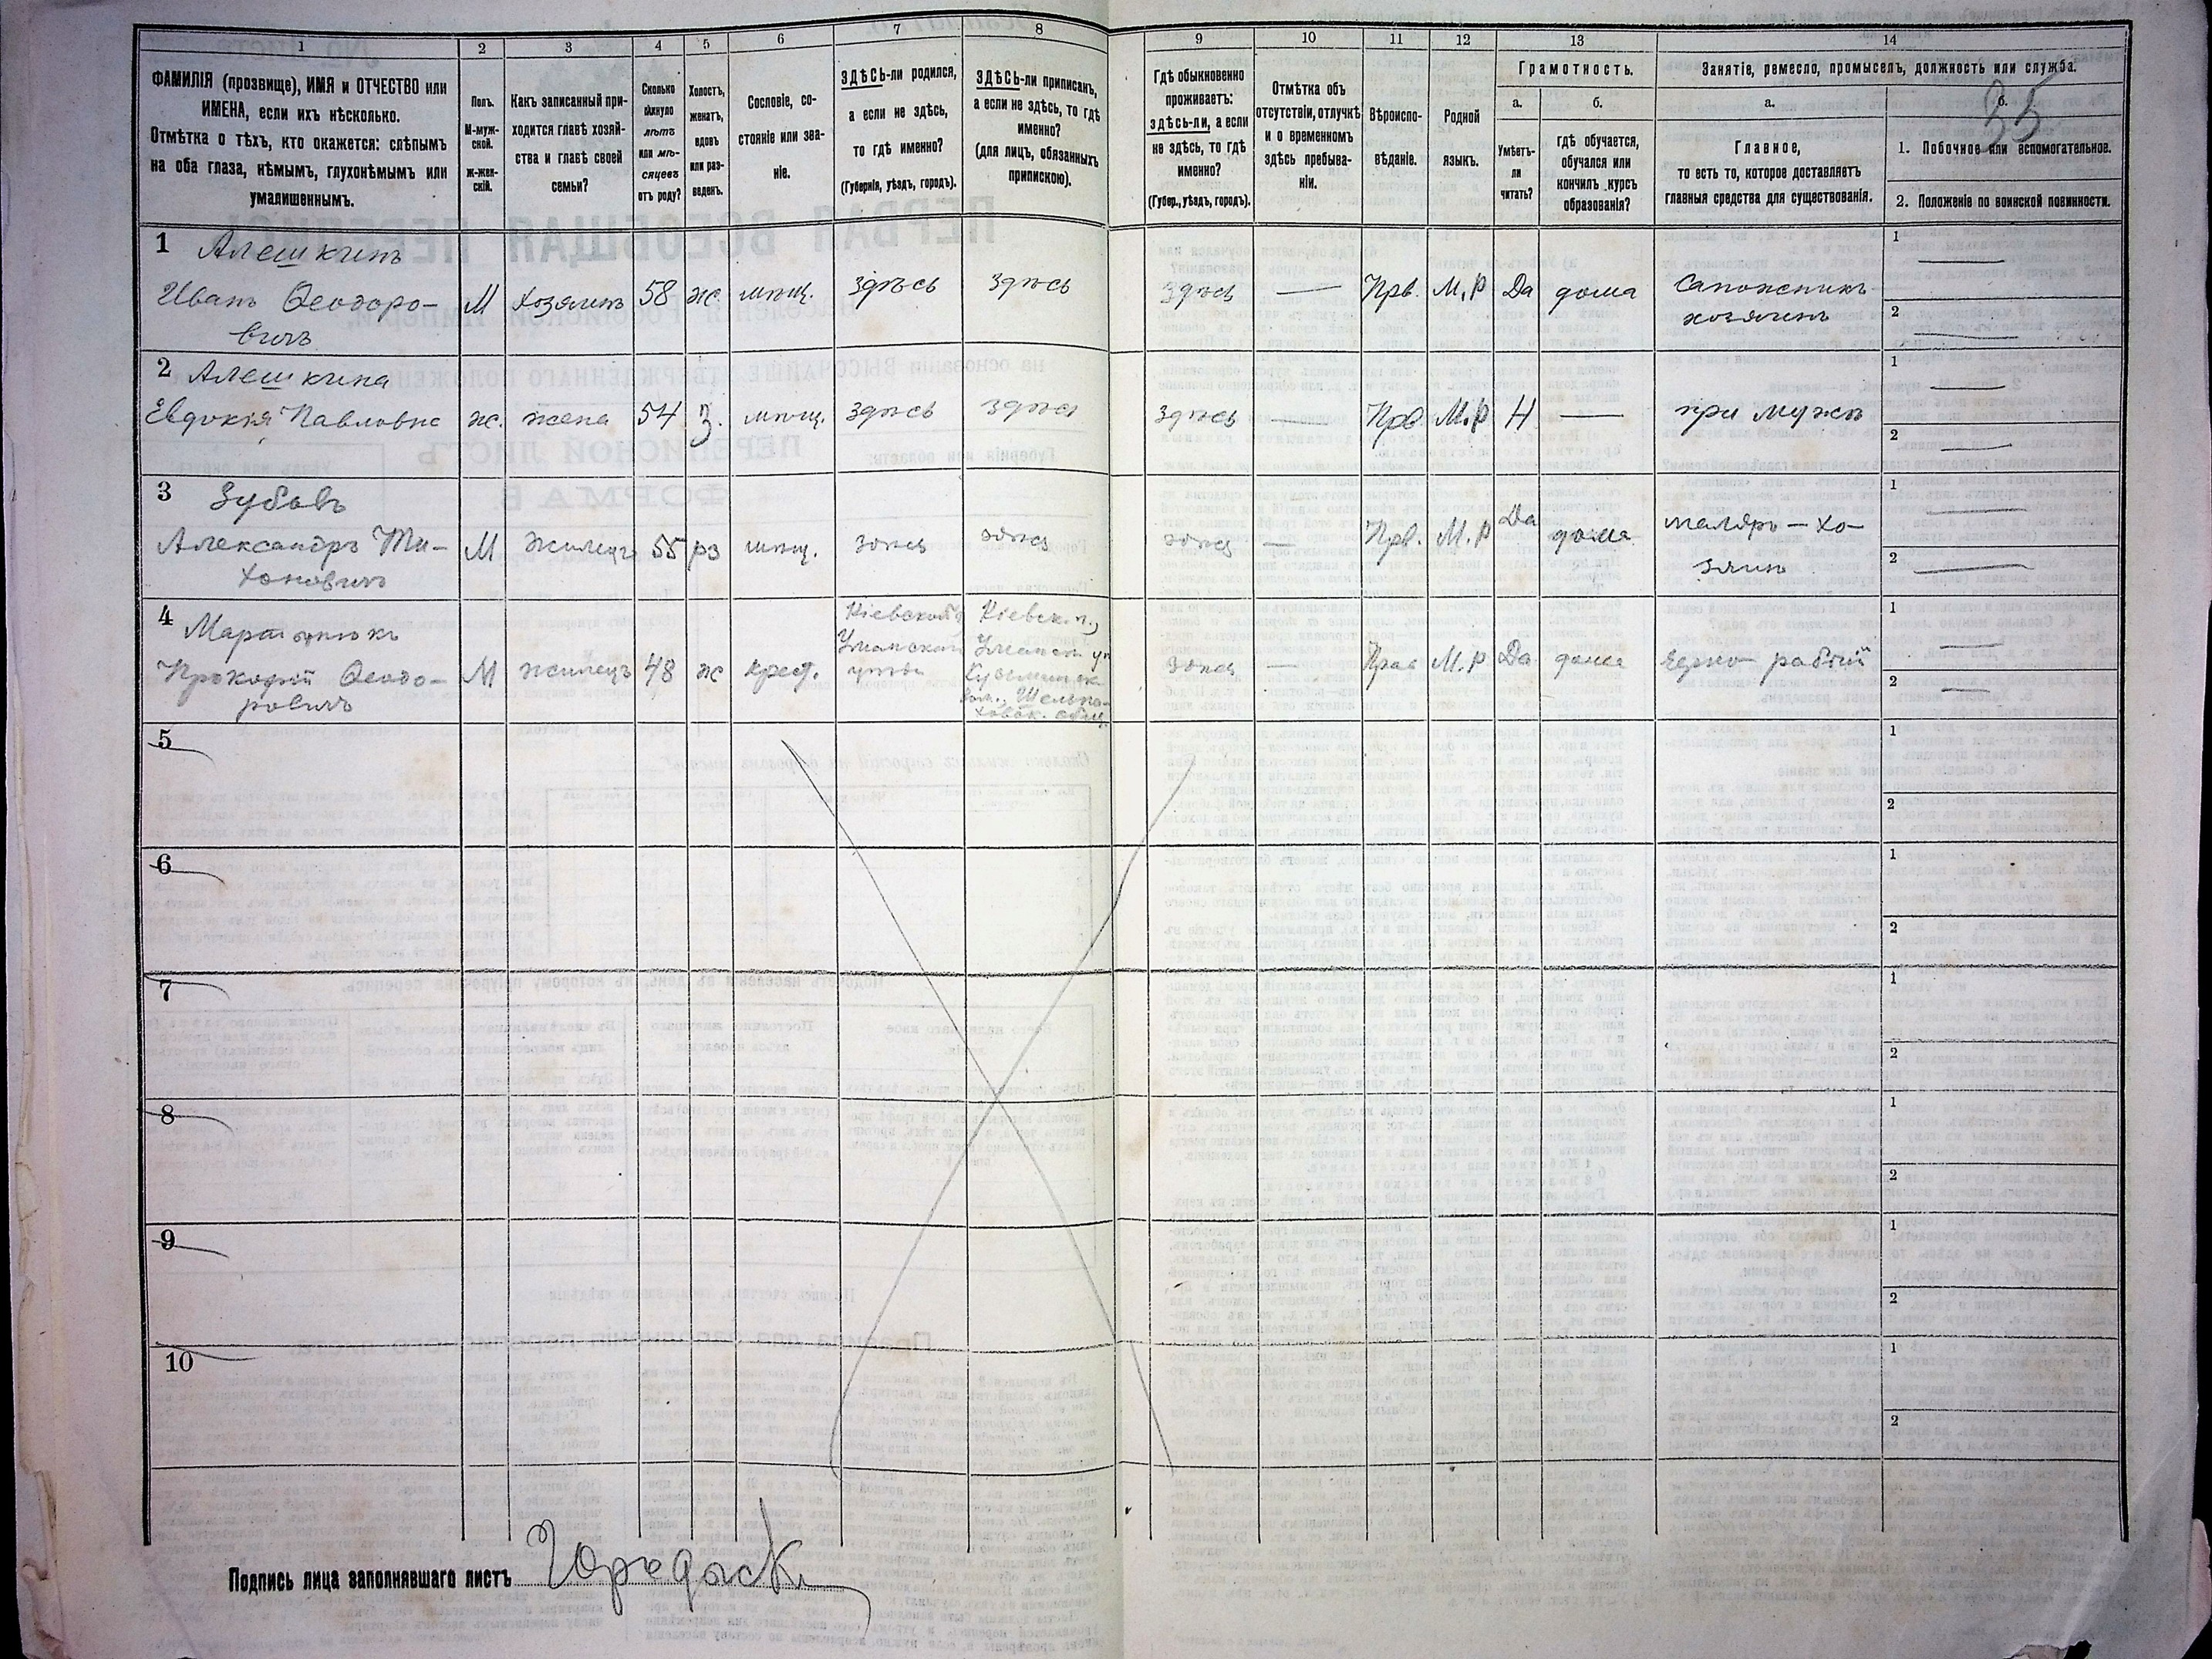 1
2
3
4
5
6
7
8
9
10
11
12
13
14
ФАМИЛІЯ (прозвище), ИМЯ и ОТЧЕСТВО или
ИМЕНА, если ихъ нѣсколько.
Отмѣтка о тѣхъ, кто окажется: слѣпымъ
на оба глаза, нѣмымъ, глухонѣмымъ или
умалишеннымъ.
Полъ.
М-муж-
ской.
ж-жен-
скій.
Какъ записанный при-
ходится главѣ хозяй-
ства и главѣ своей
семьи?
Сколько
минуло
лѣтъ
или мѣ-
сяцевъ
отъ роду?
Холостъ,
женатъ,
вдовъ
или раз-
веденъ.
Сословіе, со-
стояніе или зва-
ніе.
ЗДѢСЬ-ли родился,
а если не здѣсь,
то гдѣ именно?
(Губернія, уѣздъ, городъ).
ЗДѢСЬ-ли приписанъ,
а если не здѣсь, то гдѣ
именно?
(для лицъ, обязанныхъ
припискою).
Гдѣ обыкновенно
проживаетъ:
здѣсь-ли, а если
не здѣсь, то гдѣ
именно?
(Губер., уѣздъ, городъ).
Отмѣтка объ
отсутствіи, отлучкѣ
и о временномъ
здѣсь пребыва-
ніи.
Вѣроиспо-
вѣданіе.
Родной
языкъ.
Грамотность.
а.
Умѣетъ-
ли
читать?
б.
гдѣ обучается,
обучался или
кончилъ курсъ
образованія?
Занятіе, ремесло, промыселъ, должность или служба.
а.
Главное,
то есть то, которое доставляетъ
главныя средства для существованія.
б.
35
1. Побочное или вспомогательное.
2. Положеніе по воинской повинности.
1 Алешкинъ
Иванъ Ѳеодоро-
вичъ
М
хозяинъ
58
ж.
мѣщ.
здѣсь
здѣсь
здѣсь
—
Прв.
М.Р
Да
дома
Сапожникъ
хозяинъ
1 —
2 —
2 Алешкина
Евдокія Павловна
ж.
жена
54
З.
мѣщ.
здѣсь
здѣсь
здѣсь
—
Прв.
М.Р
Н
—
при мужѣ
1 —
2 —
3 Зубовъ
Александръ Ти-
хоновичъ
М
Жилецъ
55
рз
мѣщ.
здѣсь
здѣсь
здѣсь
—
Прв.
М.Р
Да
дома
маляръ — хо-
зяинъ
1 —
2 —
4
Прокофій Ѳеодо-
ровичъ
М
жилецъ
48
ж
крест.
Кіевской г
Уманскій
уѣзд
Кіевск. г.,
Уманск. у
вол.,
общ.
здѣсь
—
Прав
М.Р
Да
дома
рабочій
1 —
2 —
5
1
2
6
1
2
7
1
2
8
1
2
9
1
2
10
1
2
Подпись лица заполнявшаго листъ